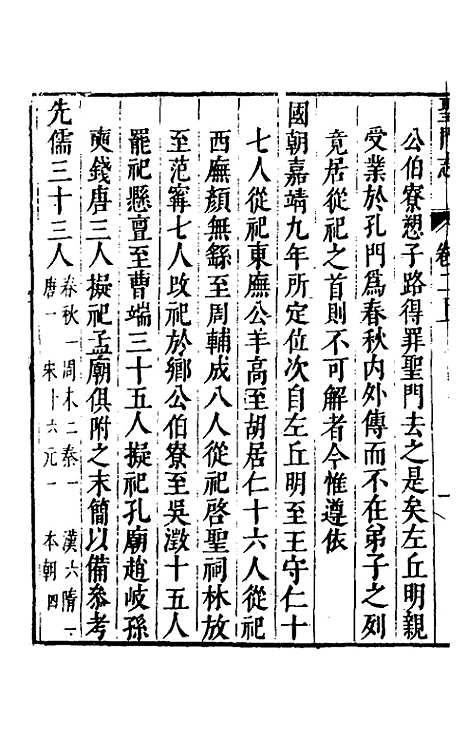 聖門志 卷二上
公伯寮愬子路得罪聖門去之是矣左丘明親
受業於孔門爲春秋内外傳而不在弟子之列
竟居從祀之首則不可解者今惟遵依
國朝嘉靖九年所定位次自左丘明至王守仁十
七人從祀東廡公羊高至胡居仁十六人從祀
西廡顏無繇至周輔成八人從祀啓聖祠林放
至范寗七人攺祀於鄉公伯寮至吳澂十五人
罷祀懸亶至曹端三十五人擬祀孔廟趙岐孫
奭錢唐三人擬祀孟廟俱附之末簡以備參考
先儒三十三人 春秋一 周末二 秦一 漢六 隋一
唐一 宋十六 元一 本朝四